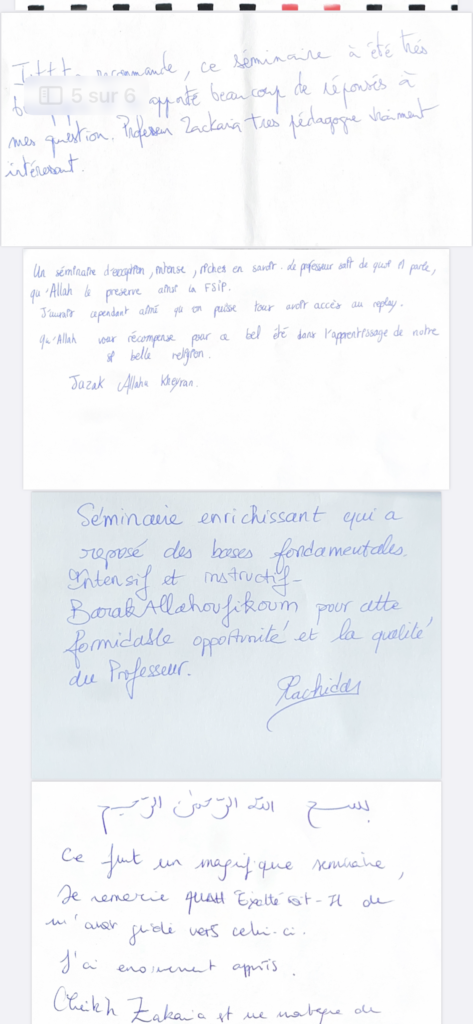 recommande, ce séminaire à été très
5 sur 6
apporté beaucoup de réponses à
mes question. Professeur Zackaria tres pédagogue vraiment
intéressant.
Un séminaire d'exception, intense, riches en savoir. Le professeur sait de quoi il parle,
qu'Allah le preserve ainsi la FSIP.
J'aurais cependant aimé qu'on puisse tous avoir accès au replay.
Qu'Allah vous récompense pour ce bel été dans l'apprentissage de notre
si belle religion.
Jazak Allahu Kheyran.
Séminaire enrichissant qui a
reposé des bases fondamentales.
Intensif et instructif-
BarakAllahoufikoum pour cette
formidable opportunité et la qualité
du Professeur.
بسم الله الرّحمن الرّحيم
Ce fut un magnifique séminaire,
Je remercie Exalté soit-Il de
m'avoir guidé vers celui-ci.
J'ai énormément appris.
Cheikh Zakaria est de